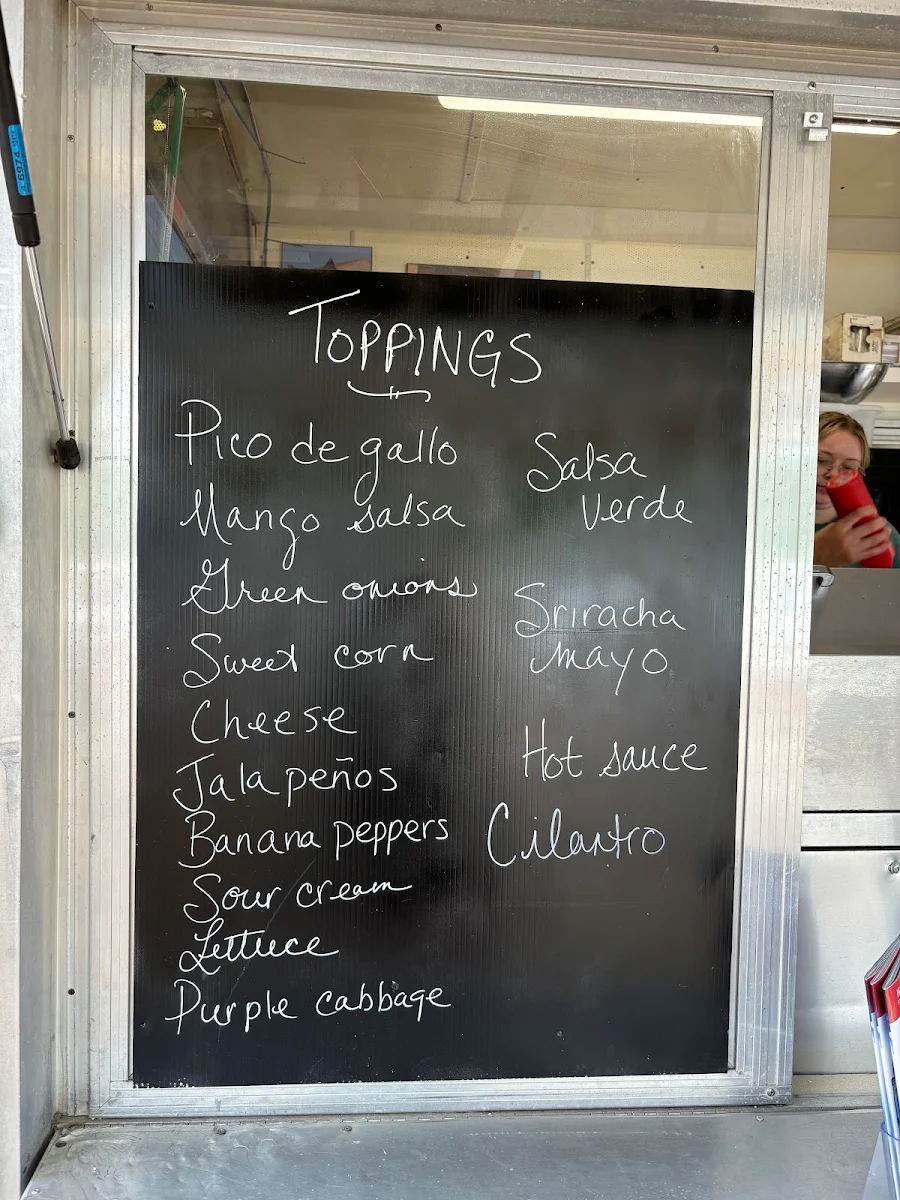 TOPPINGS
Pico de gallo
Mango salsa
Green onions
Sweet corn
Cheese
Jalapeños
Banana peppers
Sour cream
Lettuce
Purple cabbage
Salsa
Verde
Sriracha
mayo
Hot sauce
Cilantro